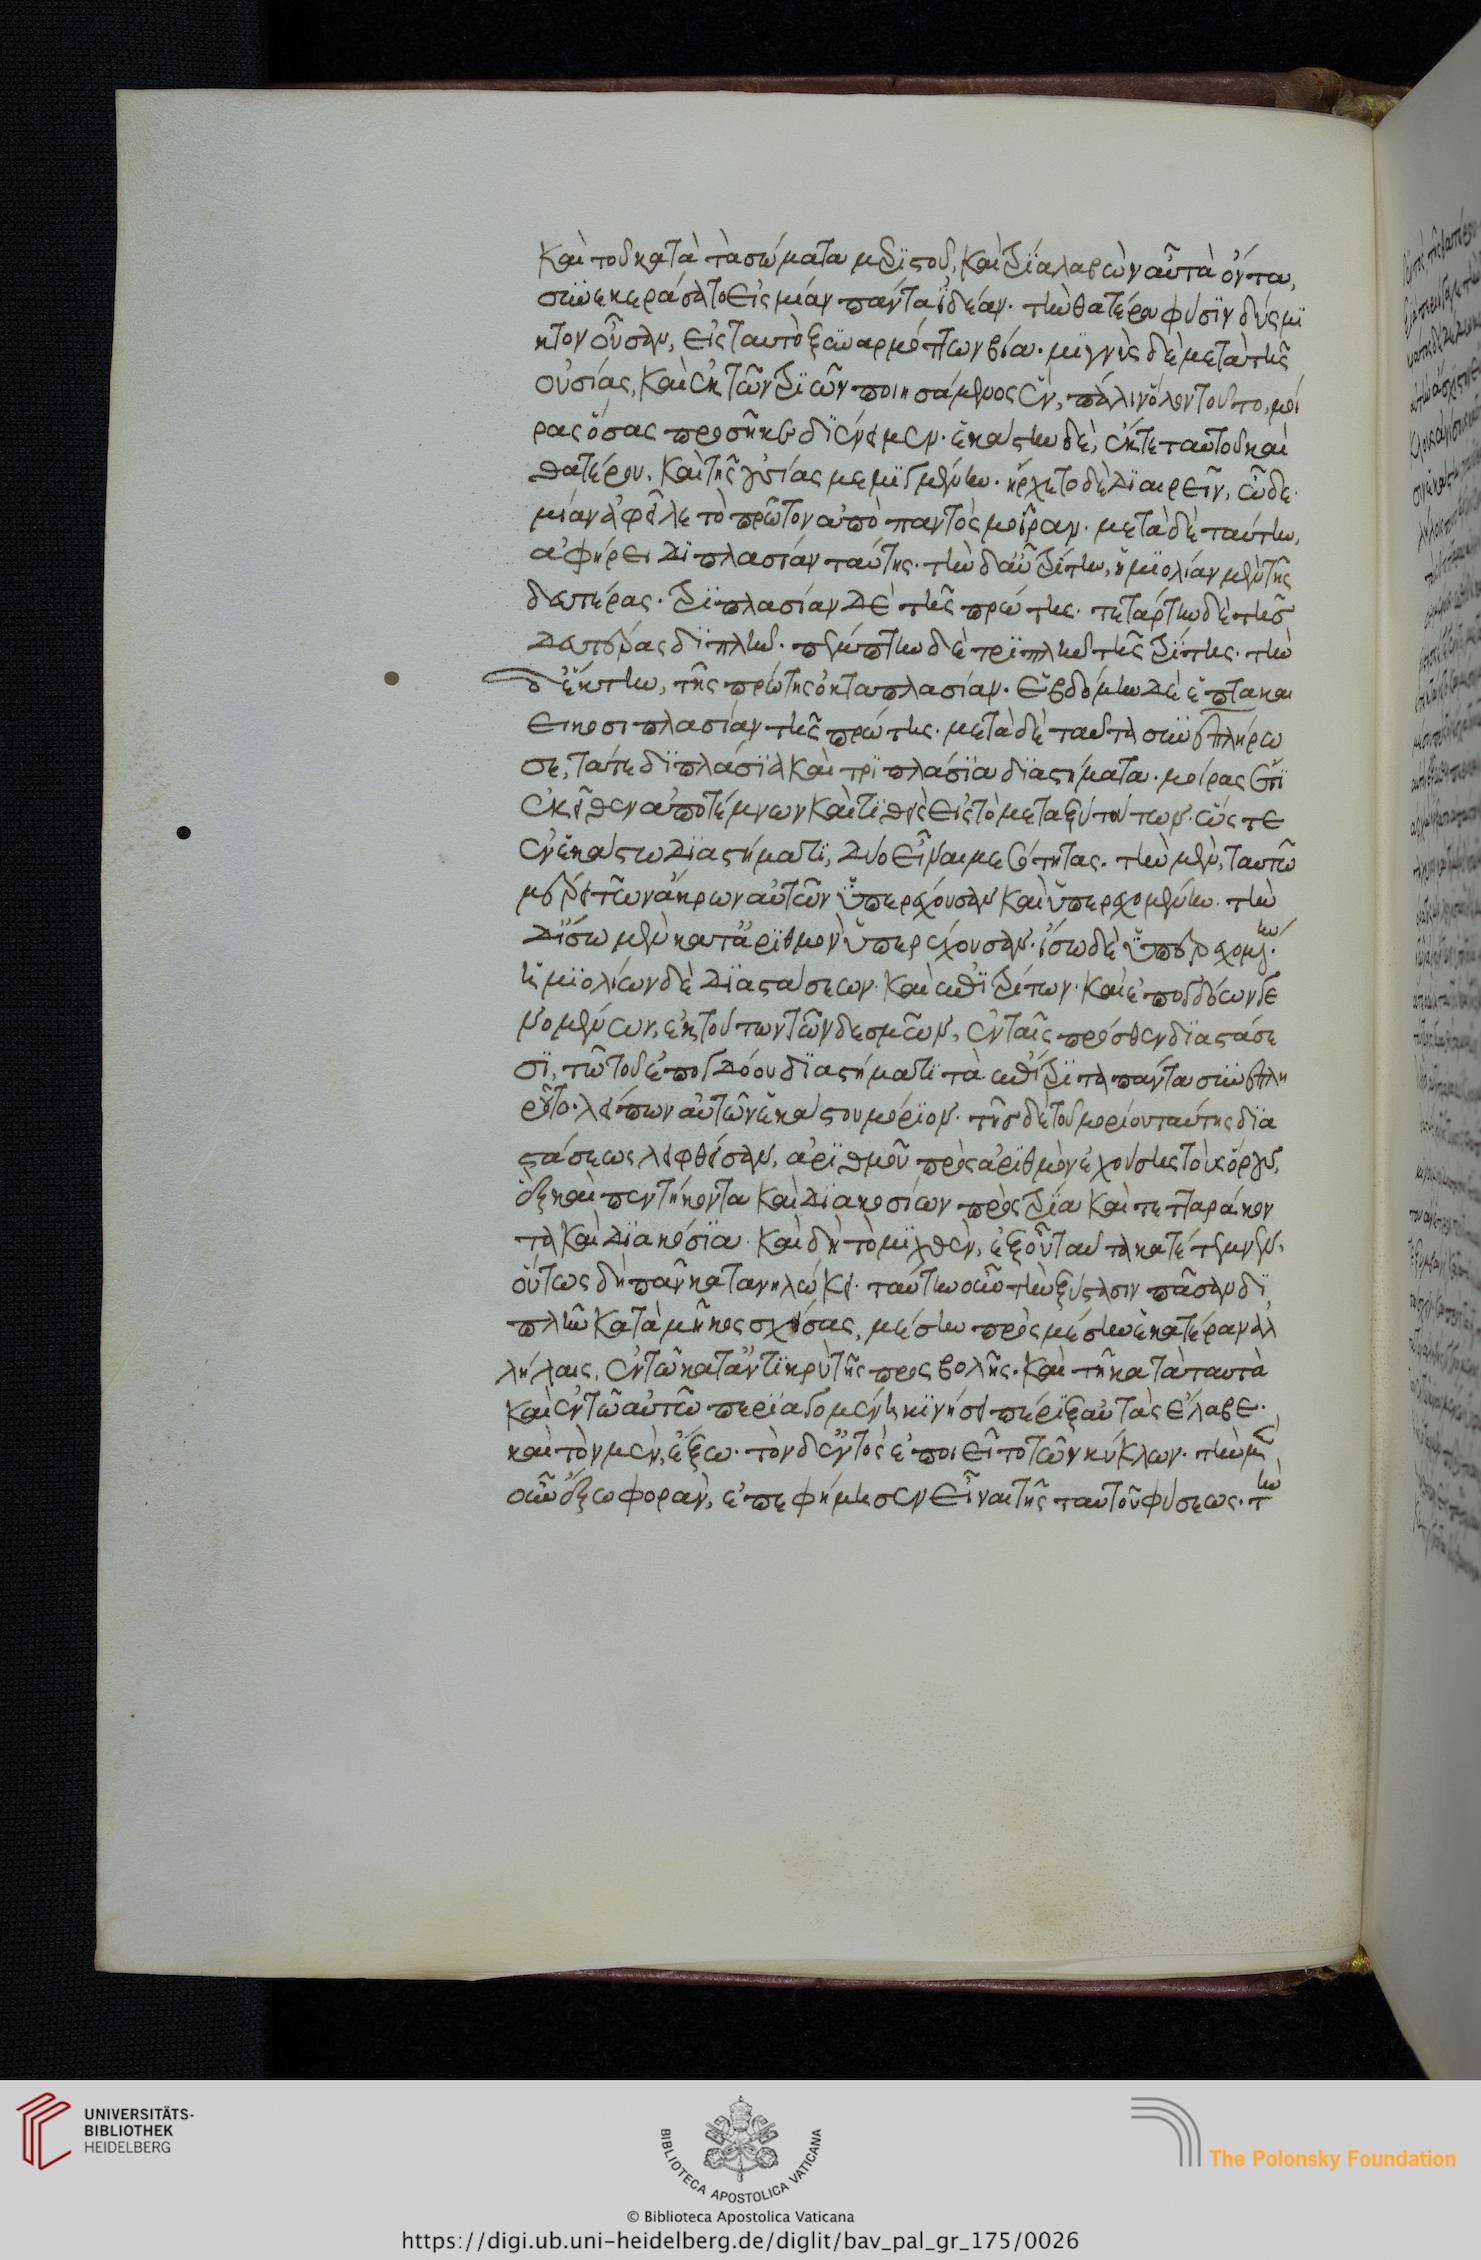 καὶ τοῦ κατὰ τὰ σώματα μεριστοῦ, καὶ τρία λαβὼν αὐτὰ ὄντα,
συνεκεράσατο εἰς μίαν πάντα ἰδέαν· τὴν θατέρου φύσιν δύσμι
κτον οὖσαν, εἰς ταυτὸ ξυναρμόττων βίᾳ· μιγνὺς δὲ μετὰ τῆς
οὐσίας, καὶ ἐκ τριῶν ποιησάμενος ἕν, πάλιν ὅλον τοῦτο, μοί
ρας ὅσας προσῆκε διένειμεν· ἑκάστην δὲ, ἔκ τε ταυτοῦ καὶ
θατέρου, καὶ τῆς οὐσίας μεμιγμένην· ἤρχετο δὲ διαιρεῖν, ὧδε·
μίαν ἀφεῖλε τὸ πρῶτον ἀπὸ παντὸς μοῖραν· μετὰ δὲ ταύτην,
ἀφῄρει διπλασίαν ταύτης· τὴν δ' αὖ τρίτην, ἡμιολίαν μὲν τῆς
δευτέρας· τριπλασίαν δὲ τῆς πρώτης· τετάρτην δὲ τῆς
δευτέρας διπλῆν· πέμπτην δὲ τριπλῆν τῆς τρίτης· τὴν
δ' ἕκτην, τῆς πρώτης ὀκταπλασίαν· ἑβδόμην δὲ ἑπτακαι
εικοσιπλασίαν τῆς πρώτης· μετὰ δὲ ταῦτα συνεπλήρου
το, τά τε διπλάσια καὶ τριπλάσια διαστήματα· μοίρας ἔτι
ἐκεῖθεν ἀποτέμνων καὶ τιθεὶς εἰς τὸ μεταξὺ τούτων· ὥστε
ἐν ἑκάστῳ διαστήματι, δύο εἶναι μεσότητας· τὴν μὲν, ταυτῷ
μέρει τῶν ἄκρων αὐτῶν ὑπερέχουσαν καὶ ὑπερεχομένην· τὴν
δ' ἴσῳ μὲν κατ' ἀριθμὸν ὑπερέχουσαν· ἴσῳ δὲ ὑπερεχομένην·
ἡμιολίων δὲ διαστάσεων· καὶ ἐπιτρίτων· καὶ ἐπογδόων γε
νομένων, ἐκ τούτων τῶν δεσμῶν, ἐν ταῖς πρόσθεν διαστάσε
σι, τῷ τοῦ ἐπογδόου διαστήματι τὰ ἐπίτριτα πάντα συνεπλη
ροῦτο· λείπων αὐτῶν ἑκάστου μόριον· τῆς δὲ τοῦ μορίου ταύτης δια
στάσεως λειφθείσαν, ἀριθμοῦ πρὸς ἀριθμὸν ἐχούσης τοὺς ὅρους,
ἓξ καὶ πεντήκοντα καὶ διακοσίων πρὸς τρία καὶ τετταράκον
τα καὶ διακόσια· καὶ δὴ τὸ μιχθὲν, ἐξ οὗ ταῦτα κατέτεμνεν,
οὕτως δὴ πᾶν κατανηλώκει· ταύτην οὖν τὴν ξύστασιν πᾶσαν δι
πλῆν κατὰ μῆκος σχίσας, μέσην πρὸς μέσην ἑκατέραν ἀλ
λήλαις, ἐν τῷ κατάντικρὺ τῆς προσβολῆς· καὶ τῇ κατὰ ταυτὰ
καὶ ἐν τῷ αὐτῷ περιαγομένῃ κινήσει πέριξ αὐτὰς ἔλαβε·
καὶ τὸν μὲν, ἔξω· τὸν δ' ἐντὸς ἐποιεῖτο τῶν κύκλων· τὴν μὲν
οὖν ἔξω φορὰν, ἐπεφήμισεν εἶναι τῆς ταυτοῦ φύσεως· τὴν
UNIVERSITÄTS-
BIBLIOTHEK
HEIDELBERG
BIBLIOTECA APOSTOLICA VATICANA
The Polonsky Foundation
© Biblioteca Apostolica Vaticana
https://digi.ub.uni-heidelberg.de/diglit/bav_pal_gr_175/0026